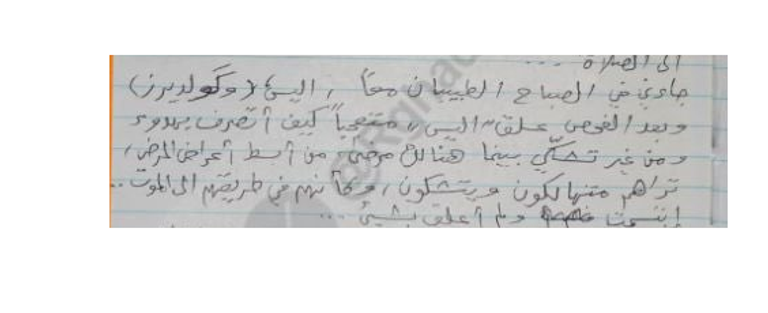 الى الصلاة ...
جاءني في الصباح الطبيبان معاً ، اليس (وكولديرز)
وبعد الفحص علق "اليس" متعجباً كيف أتصرف بهدوء
ومن غير تشكّي بينما هنالك مرضى من أبسط أعراض المرض،
تراهم متهالكون ويتشكون، وكأنهم في طريقهم الى الموت ..
إبتسمت ولم أعلق بشيئ ...